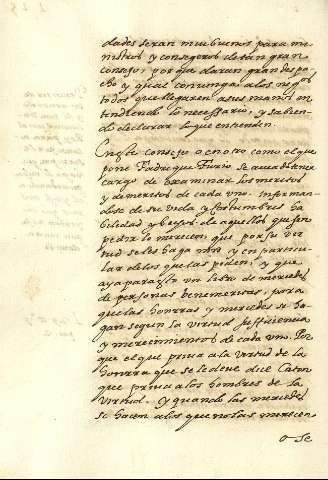 dades seran mui buenos para mi
nistros y consegeros de tan gran
consejo, porque daran grandes
y qual convenga a los negos
todos que lleguren a sus manos in
tendiendo lo necessario, y sabien
do declarar lo que entienden.
En este consejo o en otro como el que
pone Fadrique Furio se avra de tener
cargo de examinar los meritos
y demeritos de cada vno. informan
dose de su vida y costumbres ha
bilidad y de aquellos que sin
pedir lo merecen, que por su vir
tud se les haga y en particu
lar de los que las piden, y que
aya para esto vn libro de mercedes
de personas benemeritas, para
que las honrras y mercedes se ha
gan segun la virtud sufficiencia
y merecimientos de cada vno. Por
que el que priva a la virtud de la
honrra que se le deve dice Caton
que priva a los hombres de la
virtud. y quando las mercedes
se hacen a los que no las merecen
o se